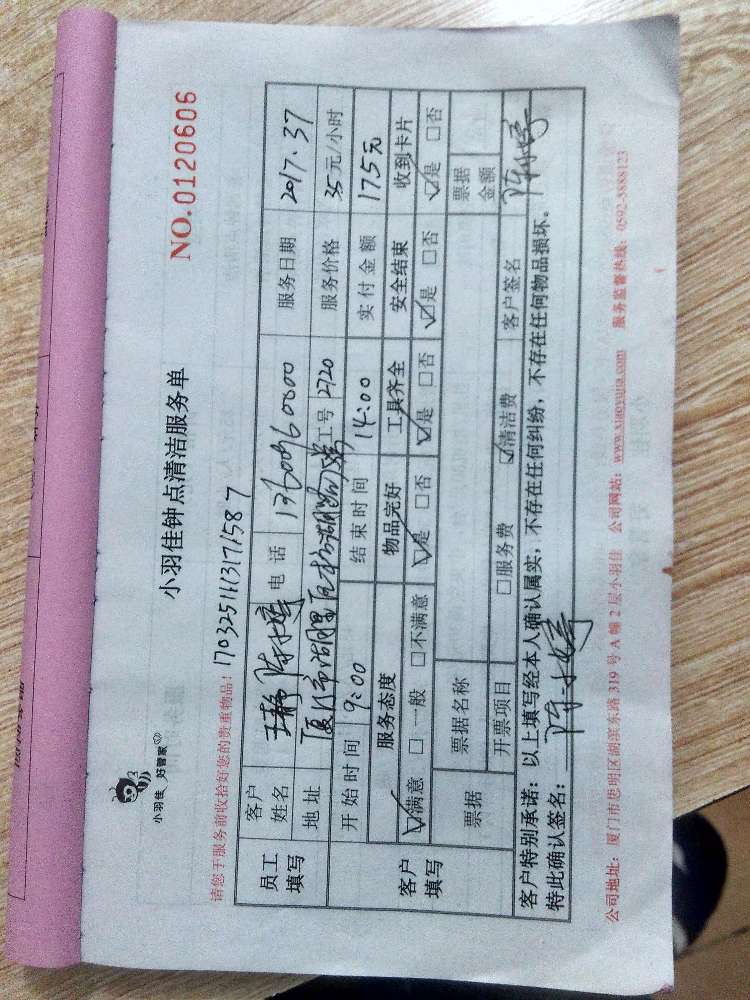 小羽佳 好管家
小羽佳钟点清洁服务单
NO.0120606
请您于服务前收拾好您的贵重物品! 170325111317587
员工填写
客户姓名 电话 服务日期 2017.37
地址 工号 2720 服务价格 35元/小时
开始时间 9:00 结束时间 14:00 实付金额 175元
客户填写
服务态度 物品完好 工具齐全 安全结束 收到卡片
☑满意 □一般 □不满意 ☑是 □否 ☑是 □否 ☑是 □否 ☑是 □否
票据 票据名称 票据金额
开票项目 □服务费 ☑清洁费 客户签名
客户特别承诺:以上填写经本人确认属实,不存在任何纠纷,不存在任何物品损坏。
特此确认签名:
公司地址:厦门市思明区湖滨东路319号A幢2层小羽佳 公司网站:www.xiaoyujia.com 服务监督热线:0592-5888123